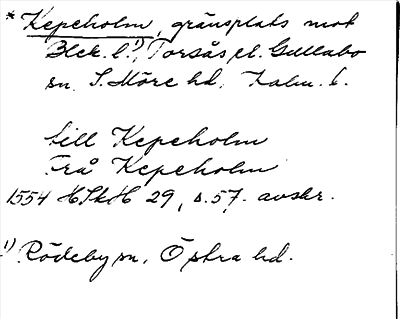 * Kepeholm, gränsplats mot
Blek. l.¹⁾, Torsås el. Gullabo
sn. S. Möre hd. Kalm. l.
till Kepeholm
Frå Kepeholm
1554 HSkH 29, s. 57. avskr.
¹⁾ Rödeby sn, Östra hd.